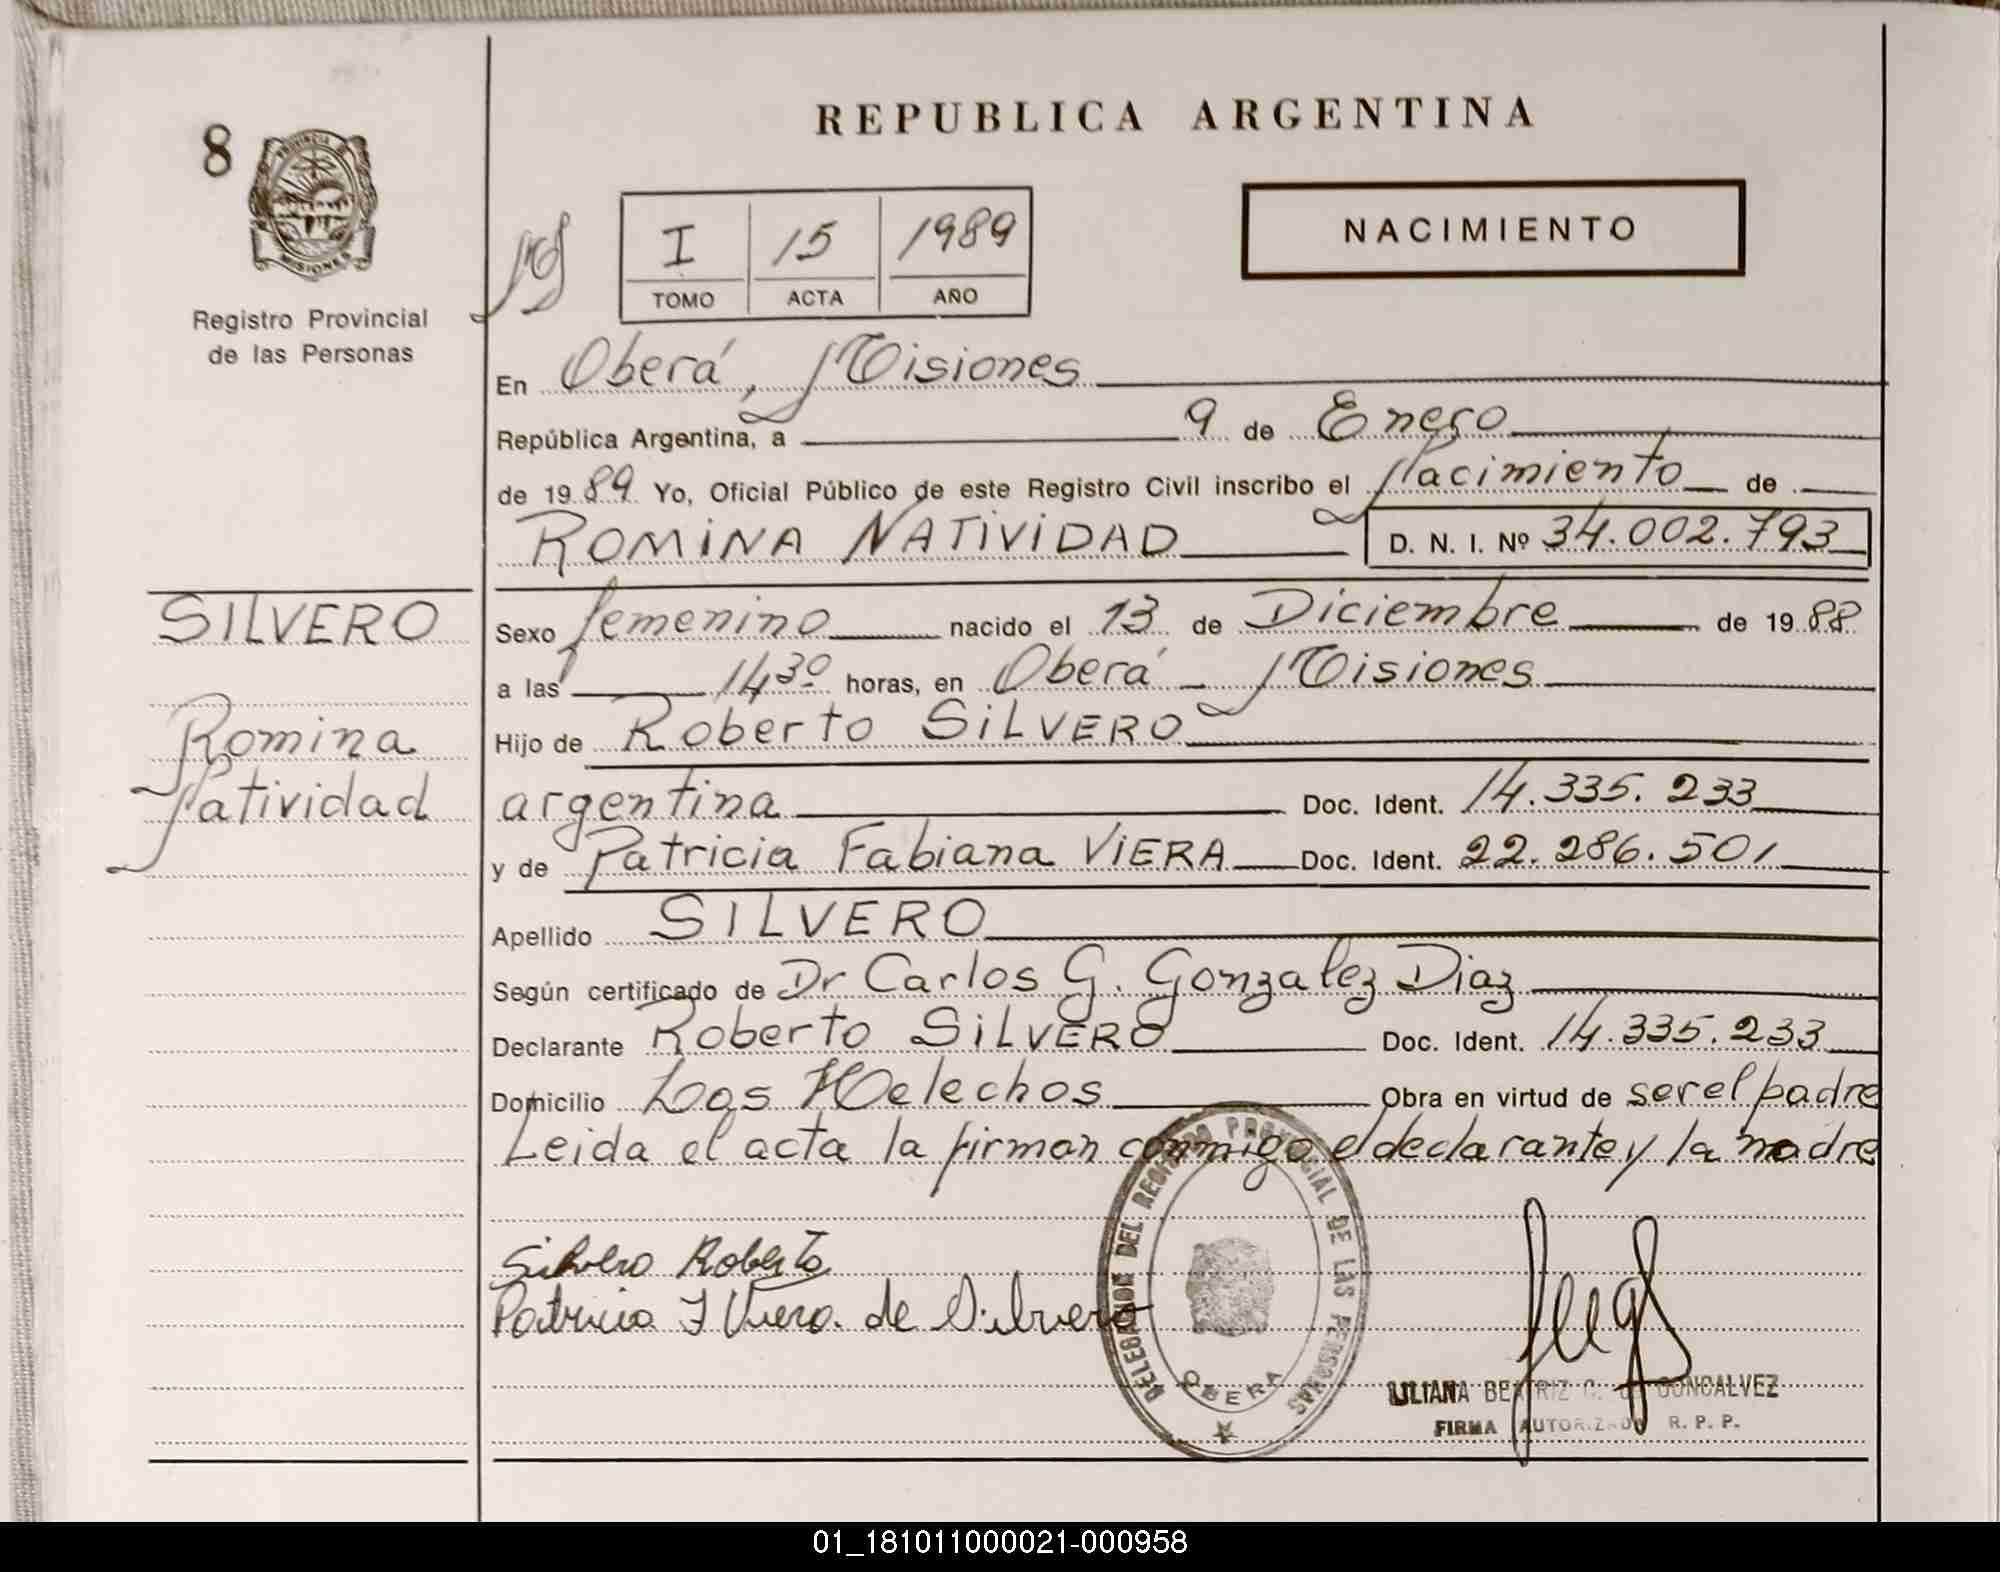 REPUBLICA ARGENTINA
8
PROVINCIA DE
MISIONES
Registro Provincial
de las Personas
I 15 1989
TOMO ACTA AÑO
NACIMIENTO
En Oberá, Misiones
República Argentina, a 9 de Enero
de 1989 Yo, Oficial Público de este Registro Civil inscribo el Nacimiento de
ROMINA NATIVIDAD D. N. I. Nº 34.002.793
SILVERO
Romina
Natividad
Sexo femenino nacido el 13 de Diciembre de 1988
a las 14 30 horas, en Oberá Misiones
Hijo de Roberto SILVERO
argentina Doc. Ident. 14.335.233
y de Patricia Fabiana VIERA Doc. Ident. 22.286.501
Apellido SILVERO
Según certificado de Dr Carlos G. Gonzalez Diaz
Declarante Roberto SILVERO Doc. Ident. 14.335.233
Domicilio Los Helechos Obra en virtud de ser el padre
Leida el acta la firman conmigo el declarante y la madre
Silvero Roberto
Patricia F Viera de Silvero
DELEGACION DEL REGISTRO PROVINCIAL DE LAS PERSONAS
OBERA
LILIANA BEATRIZ GONCALVEZ
FIRMA AUTORIZADA R. P. P.
01_181011000021-000958